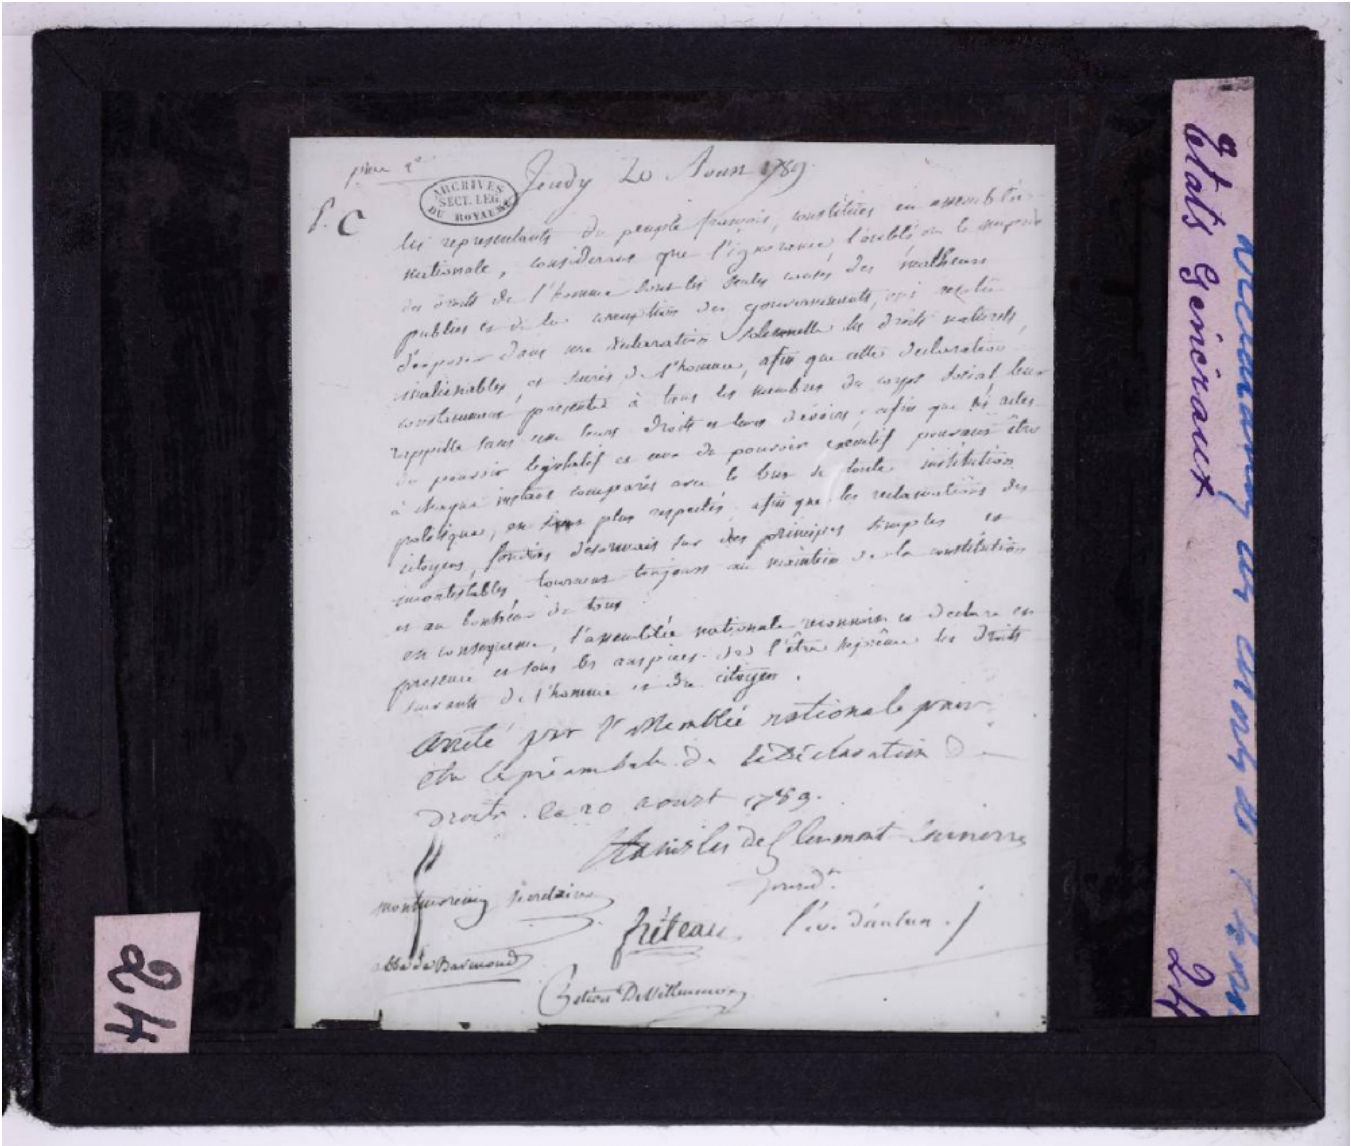 pièce 2e
Jeudy 20 Aoust 1789
ARCHIVES
SECT. LEG.
DU ROYAUME
P. C
les representants du peuple françois, constitués en assemblée
nationale, considerant que l'ignorance l'oubli ou le mepris
des droits de l'homme sont les seules causes des malheurs
publics et de la corruption des gouvernements, ont resolu
d'exposer dans une declaration solemnelle les droits naturels,
inalienables, et sacrés de l'homme, afin que cette declaration
constamment presente à tous les membres du corps social leur
rappelle sans cesse leurs droits et leurs devoirs; afin que les actes
du pouvoir legislatif et ceux du pouvoir executif pouvant être
à chaque instant comparés avec le but de toute institution
politique, en soient plus respectés; afin que les reclamations des
citoyens, fondées desormais sur des principes simples et
incontestables tournent toujours au maintien de la constitution
et au bonheur de tous
en consequence, l'assemblée nationale reconnoit et declare en
presence et sous les auspices de l'être suprême les droits
suivants de l'homme et du citoyen.
arreté par l'assemblée nationale pour
être le préambule de la déclaration des
droits. ce 20 aoust 1789.
Stanislas de Clermont Tonnerre
presdt.
montmorency secretaire
fréteau
l'év. d'autun.
abbé de Barmond
Petion De Villeneuve
Etats Généraux 24
24